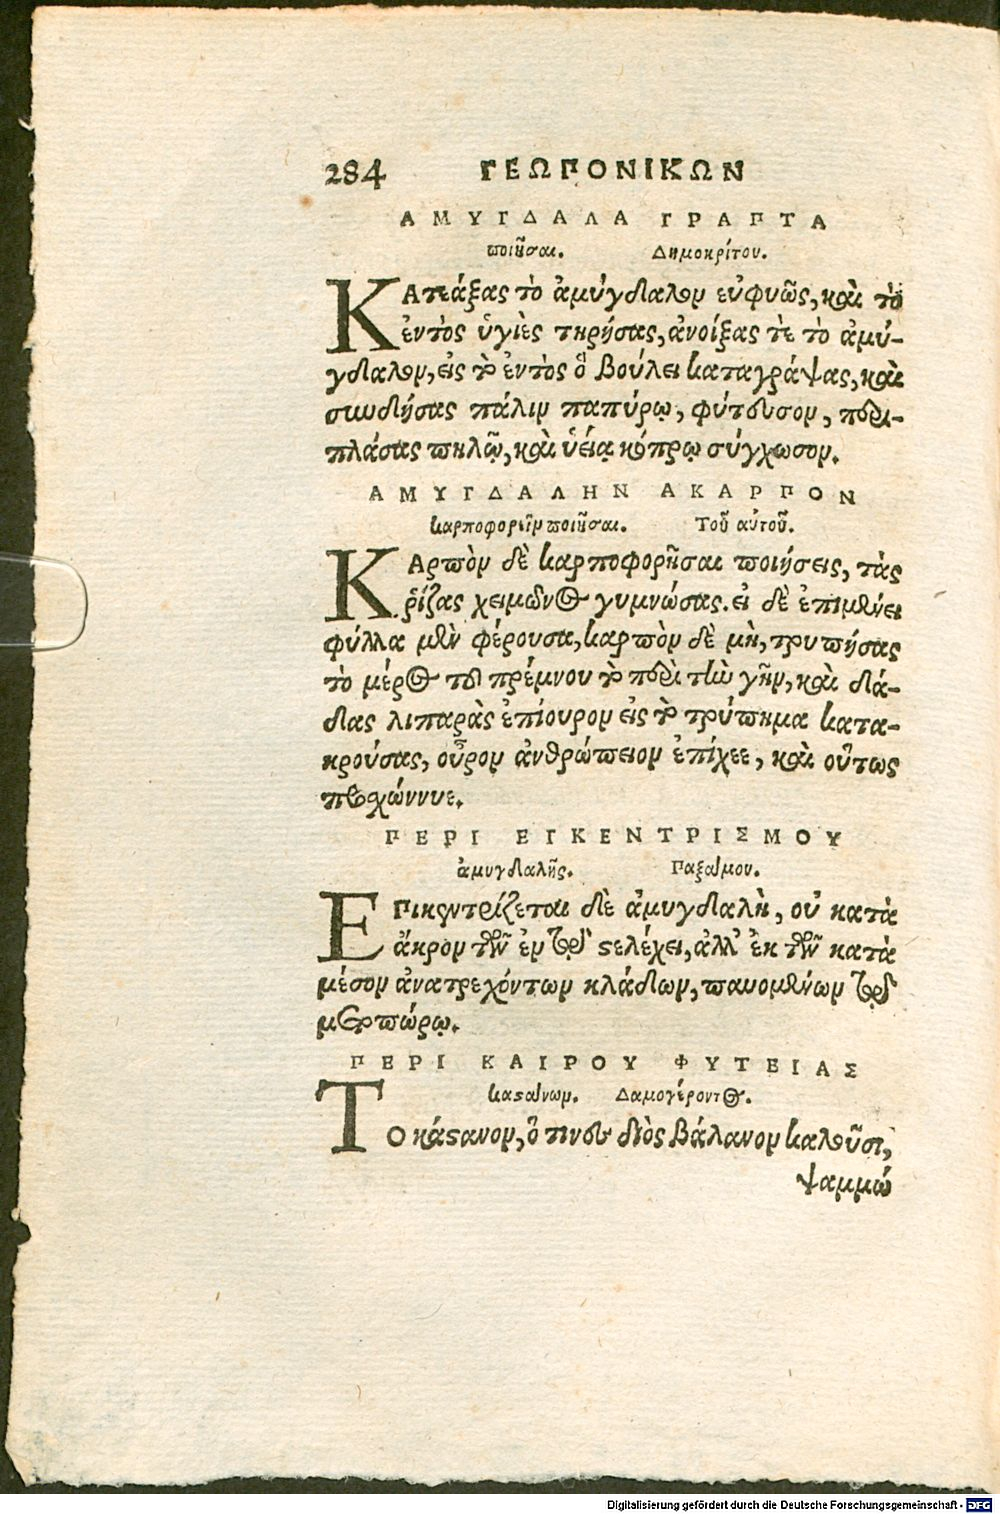 284 ΓΕΩΠΟΝΙΚΩΝ
ΑΜΥΓΔΑΛΑ ΓΡΑΠΤΑ
ποιῆσαι. Δημοκρίτου.
ΚΑτεάξας τὸ ἀμύγδαλον εὐφυῶς, καὶ τὸ
ἐντὸς ὑγιὲς τηρήσας, ἀνοίξας τε τὸ ἀμύ-
γδαλον, εἰς τὸ ἐντὸς ὃ βούλει καταγράψας, καὶ
συνδήσας πάλιν παπύρῳ, φύτευσον, περι-
πλάσας πηλῷ, καὶ ὑείᾳ κόπρῳ σύγχωσον.
ΑΜΥΓΔΑΛΗΝ ΑΚΑΡΠΟΝ
καρποφορεῖν ποιῆσαι. Τοῦ αὐτοῦ.
ΚΑρπὸν δὲ καρποφορῆσαι ποιήσεις, τὰς
ῥίζας χειμῶνος γυμνώσας. εἰ δὲ ἐπιμένει
φύλλα μὲν φέρουσα, καρπὸν δὲ μὴ, τρυπήσας
τὸ μέρος τοῦ πρέμνου τὸ περὶ τὴν γῆν, καὶ δά-
δας λιπαρὰς ἐπίουρον εἰς τὸ τρύπημα κατα-
κρούσας, οὖρον ἀνθρώπειον ἐπίχεε, καὶ οὕτως
προχώννυε.
ΠΕΡΙ ΕΓΚΕΝΤΡΙΣΜΟΥ
ἀμυγδαλῆς. Παξάμου.
ΕΠικεντρίζεται δὲ ἀμυγδαλὴ, οὐ κατὰ
ἄκρον τῶν ἐν τῷ στελέχει, ἀλλ' ἐκ τῶν κατὰ
μέσον ἀνατρεχόντων κλάδων, παυομένων τῷ
μετοπώρῳ.
ΠΕΡΙ ΚΑΙΡΟΥ ΦΥΤΕΙΑΣ
καστάνων. Δαμογέροντος.
ΤΟ κάστανον, ὅ τινες διὸς βάλανον καλοῦσι,
ψαμμώ
Digitalisierung gefördert durch die Deutsche Forschungsgemeinschaft - DFG